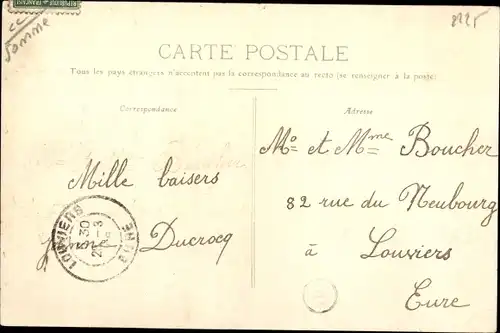 RÉPUBLIQUE FRANÇAISE
Somme
CARTE POSTALE
Tous les pays étrangers n'acceptent pas la correspondance au recto (se renseigner à la poste)
Correspondance
Adresse
Mille baisers
Jeanne Ducrocq
LOUVIERS
30
EURE
Mr et Mme Boucher
82 rue du Neubourg
à Louviers
Eure